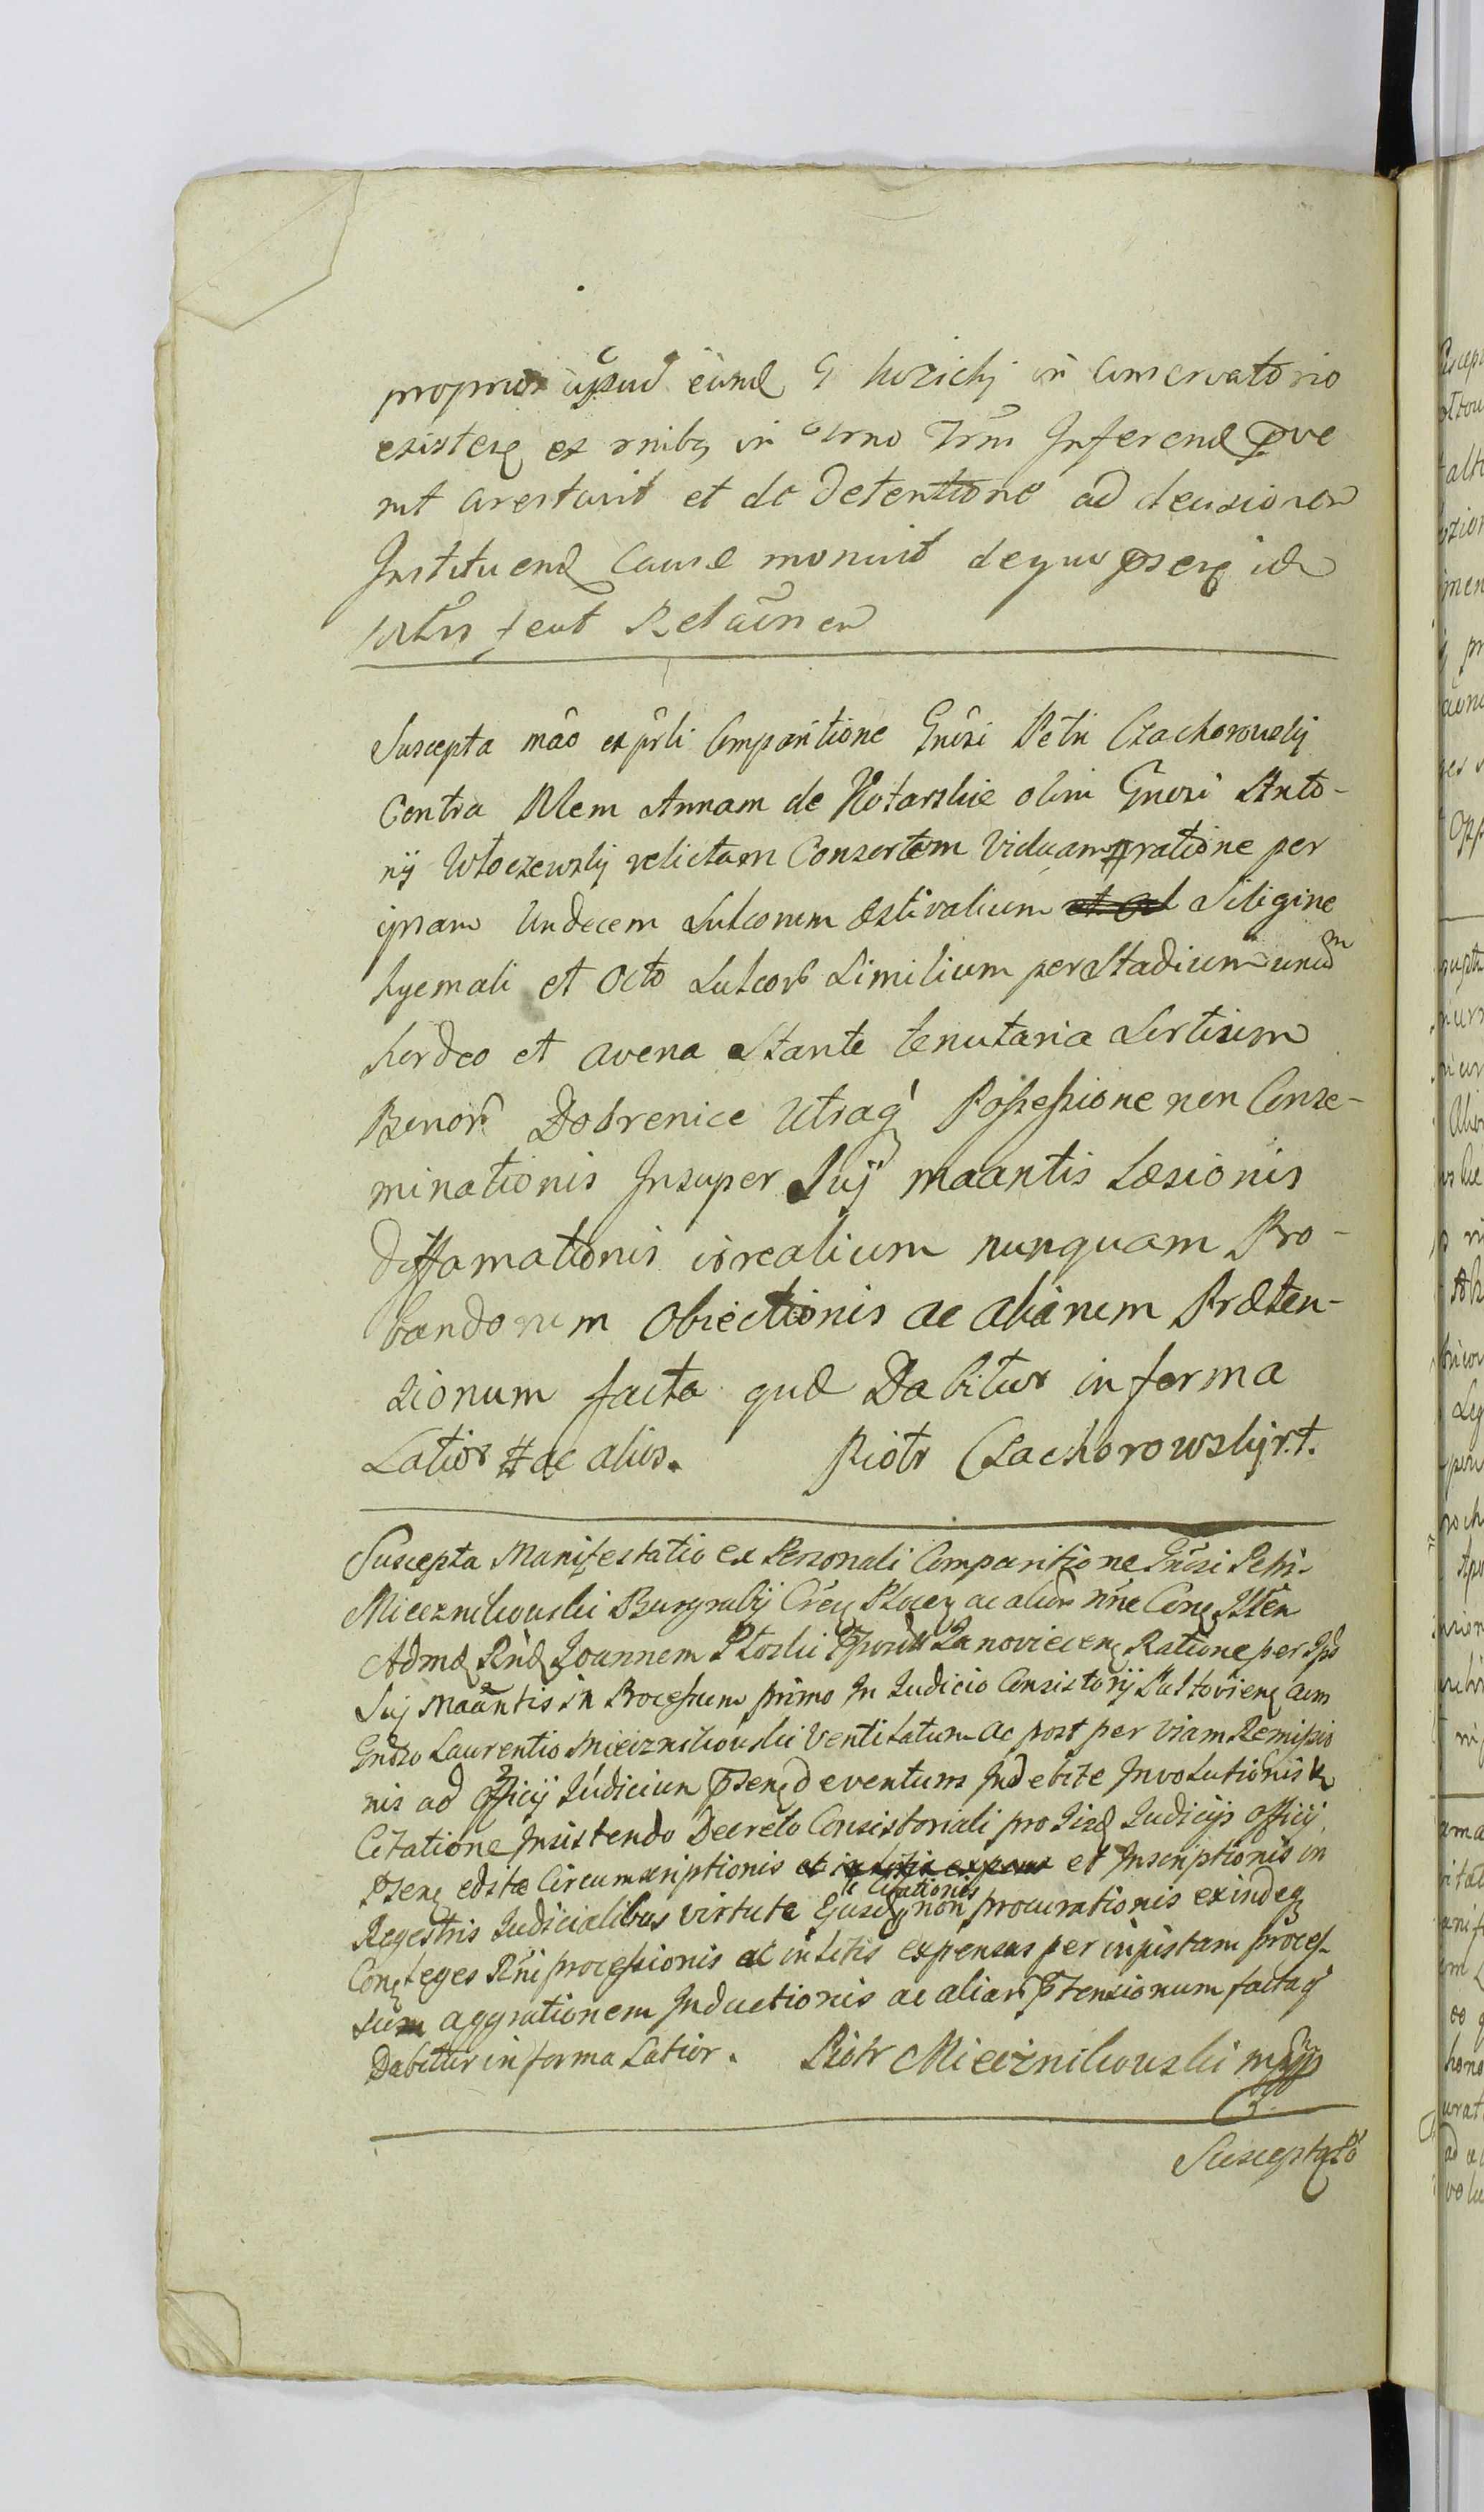 proprio apud eund G kozickj in conservatorio
existere ex
arestavit et de detentione ad decisionem
Instituend Causæ monuit dequo id
fecit Relaõnem
Suscepta mãõ ex prsli Comparitione Gnõsi Petri Czachorowskij
Contra Annam de Kotarskie olim Gnosi Anto-
nij Wtoczewskij relictam Consortem Viduam ratione per
ipsam Undecem Sulcorum Æstivalium Siligine
hyemali et Octo Sulcor Similium per Stadium unũm
hordeo et avena Stante tenutaria Sortium
Bonor Dobrenice Utraq Possessione non Conse-
minationis Insuper Suj maantis Læsionis
diffamationis realium nunquam Pro-
bandorum Obiectionis ac aliarum Præten-
sionum facta quæ Dabitur in forma
Latior ac alius. Piotr Czachorowskij r.t.
Suscepta Manifestatio ex Personali Comparitione Gnõsi Petri
Miecznikouski Burgrabij Plocen ac alior nne Con
Admd Rnd Joannem Ploski Ratione per Ips
Suj Maãntis in Processum primo In Judicio Consistorij Pultovien cum
Gnoso Laurentio Miecznikouski Ventilatum ac post per Viam Remissio
nis ad Officij Judicium Psen deventum Indebite Involutionis
Citatione Insistendo Decreto Consistoriali pro Judicijs Officij
Psen editæ Circumscriptionis et Inscriptionis in
Regestris Judicialibus virtute Ejusd Citationis non procurationis exindeq
Con Leges processionis ac in Litis expensas per injustam proces-
sum aggrationem Inductionis ac aliar Ptensionum facta q
Dabitur in forma Latior. Piotr Miecznikouski mpp
Suscepta